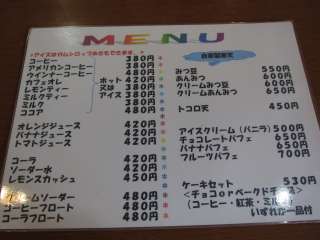 MENU
自家製甘味
コーヒー 380円
アメリカンコーヒー 380円
ウインナーコーヒー 480円
カフェオレ ホット 420円
レモンティー 又は 420円
ミルクティー アイス 420円
ミルク 380円
ココア 480円
オレンジジュース 420円
バナナジュース 420円
トマトジュース 420円
コーラ 420円
ソーダー水 420円
レモンスカッシュ 450円
クリームソーダー 480円
コーヒーフロート 480円
コーラフロート 480円
みつ豆 550円
あんみつ 600円
クリームみつ豆 600円
クリームあんみつ 650円
トコロ天 450円
アイスクリーム (バニラ) 500円
チョコレートパフェ 650円
バナナパフェ 650円
フルーツパフェ 700円
ケーキセット 530円
<チョコorベークドチーズ>
(コーヒー・紅茶・ミルク)
いずれか一品付